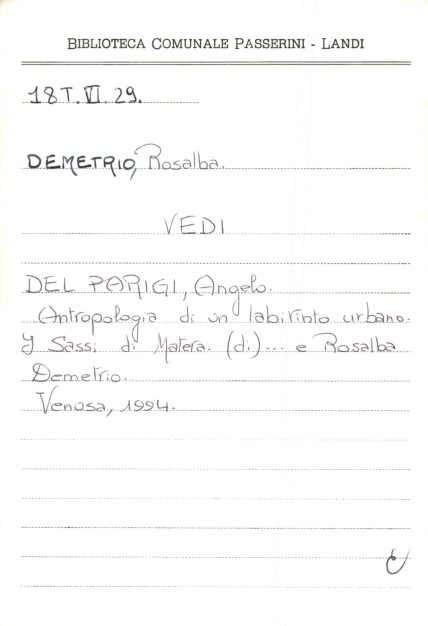 BIBLIOTECA COMUNALE PASSERINI - LANDI
18T.VI.29.
DEMETRIO, Rosalba.
VEDI
DEL PARIGI, Angelo.
Antropologia di un labirinto urbano.
I Sassi di Matera. (di)... e Rosalba
Demetrio.
Venosa, 1994.